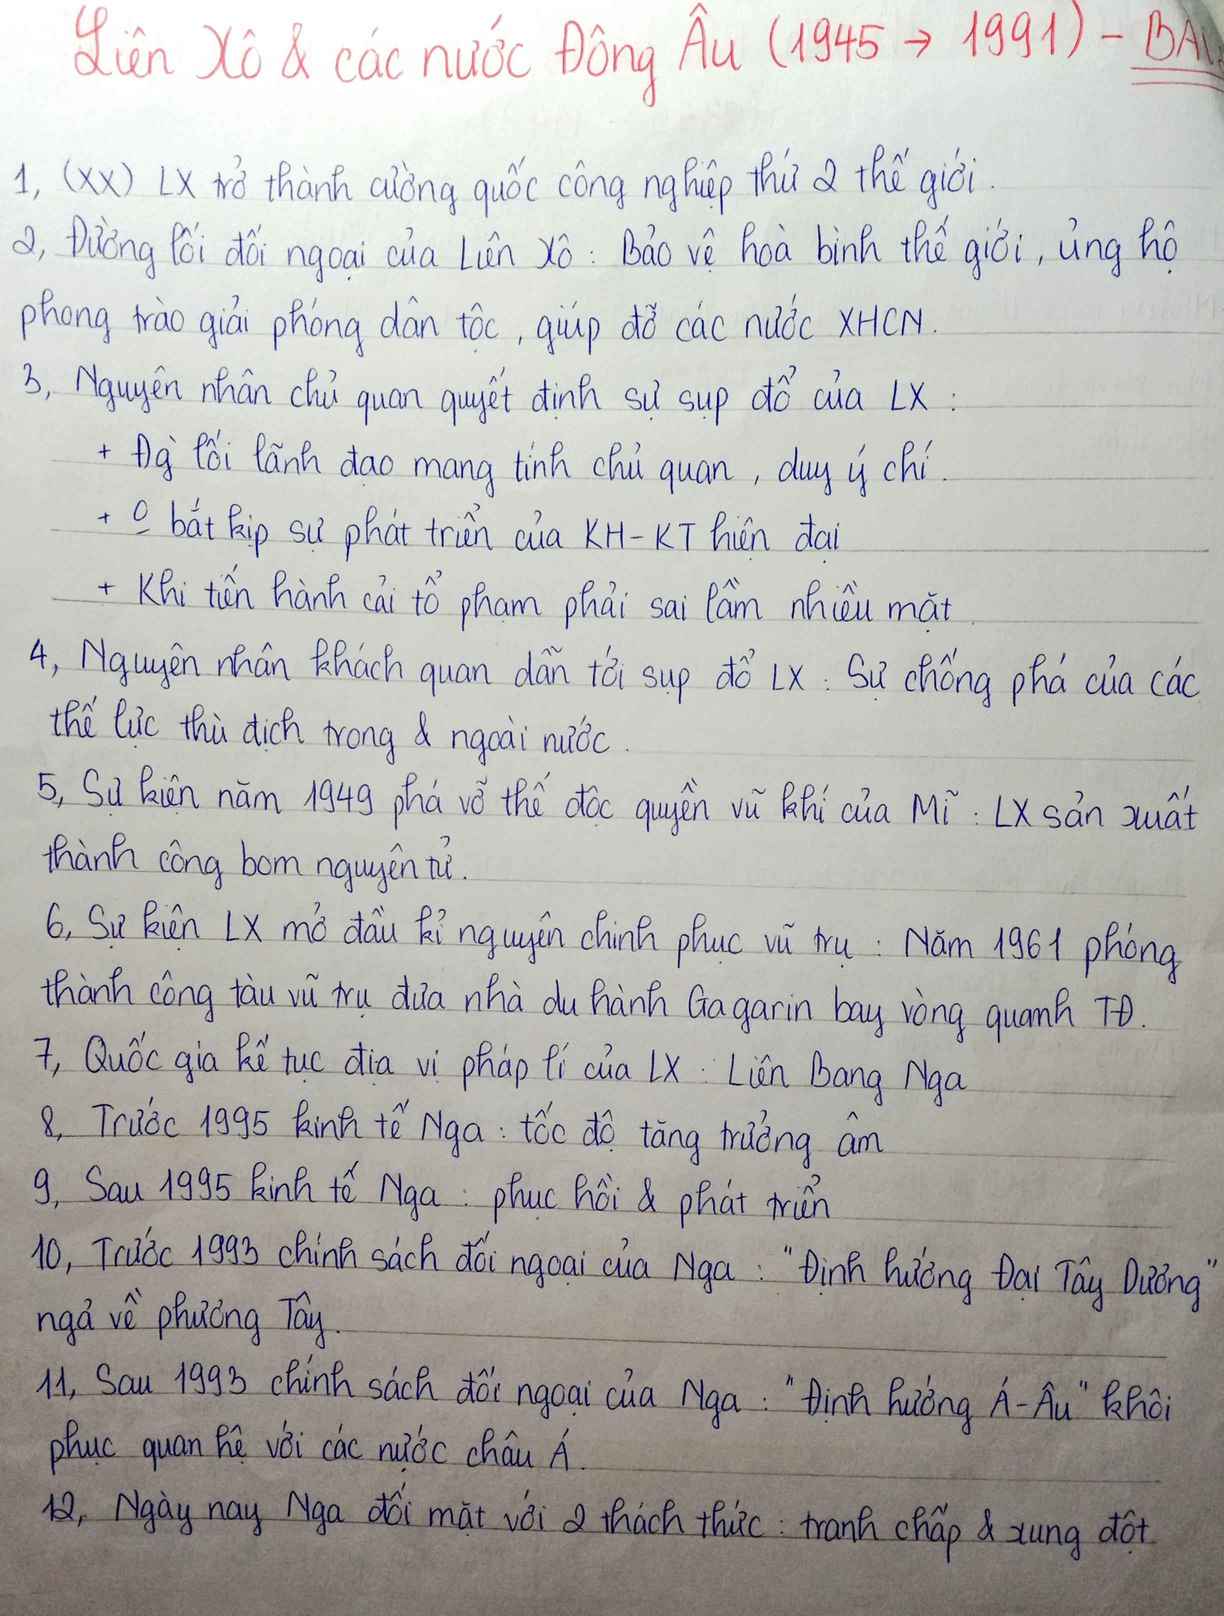 Liên Xô & các nước Đông Âu (1945 → 1991) -
1, (XX) LX trở thành cường quốc công nghiệp thứ 2 thế giới.
2, Đường lối đối ngoại của Liên Xô : Bảo vệ hoà bình thế giới, ủng hộ
phong trào giải phóng dân tộc, giúp đỡ các nước XHCN.
3, Nguyên nhân chủ quan quyết định sự sụp đổ của LX :
+ Đg` lối lãnh đạo mang tính chủ quan, duy ý chí.
+ O bắt kịp sự phát triển của KH-KT hiện đại
+ Khi tiến hành cải tổ phạm phải sai lầm nhiều mặt.
4, Nguyên nhân khách quan dẫn tới sụp đổ LX : Sự chống phá của các
thế lực thù địch trong & ngoài nước.
5, Sự kiện năm 1949 phá vỡ thế độc quyền vũ khí của Mĩ : LX sản xuất
thành công bom nguyên tử.
6, Sự kiện LX mở đầu kỉ nguyên chinh phục vũ trụ : Năm 1961 phóng
thành công tàu vũ trụ đưa nhà du hành Gagarin bay vòng quanh TĐ.
7, Quốc gia kế tục địa vị pháp lí của LX : Liên Bang Nga
8, Trước 1995 kinh tế Nga : tốc độ tăng trưởng âm
9, Sau 1995 kinh tế Nga : phục hồi & phát triển
10, Trước 1993 chính sách đối ngoại của Nga : "Định hướng Đại Tây Dương"
ngả về phương Tây.
11, Sau 1993 chính sách đối ngoại của Nga : "Định hướng Á-Âu" khôi
phục quan hệ với các nước châu Á.
12, Ngày nay Nga đối mặt với 2 thách thức : tranh chấp & xung đột